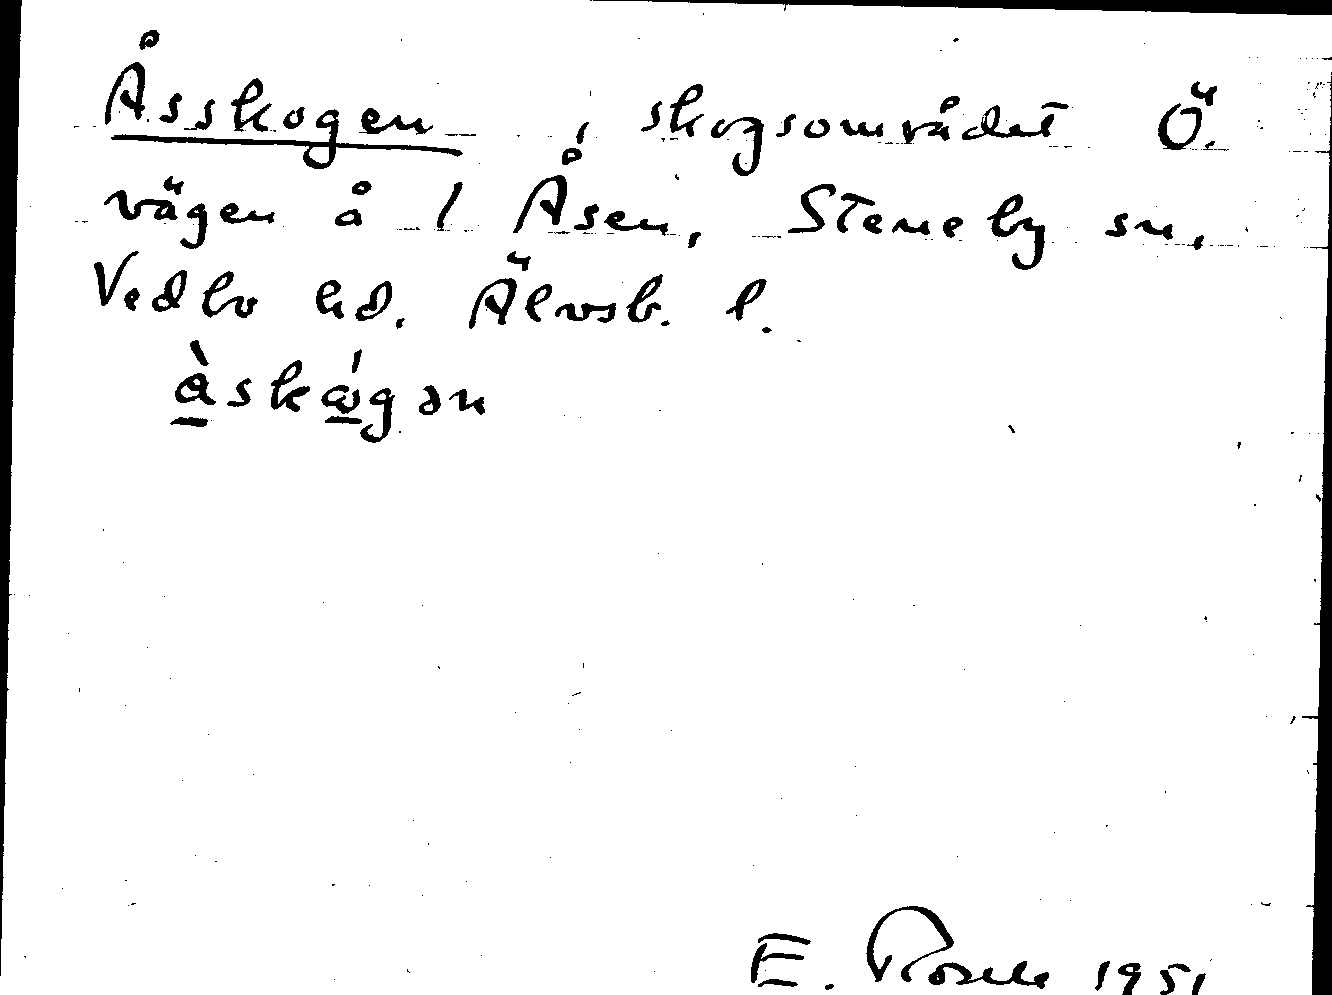 Åsskogen, skogsområdet Ö.
vägen å 1 Åsen, Steneby sn,
Vedbo hd. Älvsb. l.
E. Rosell 1951